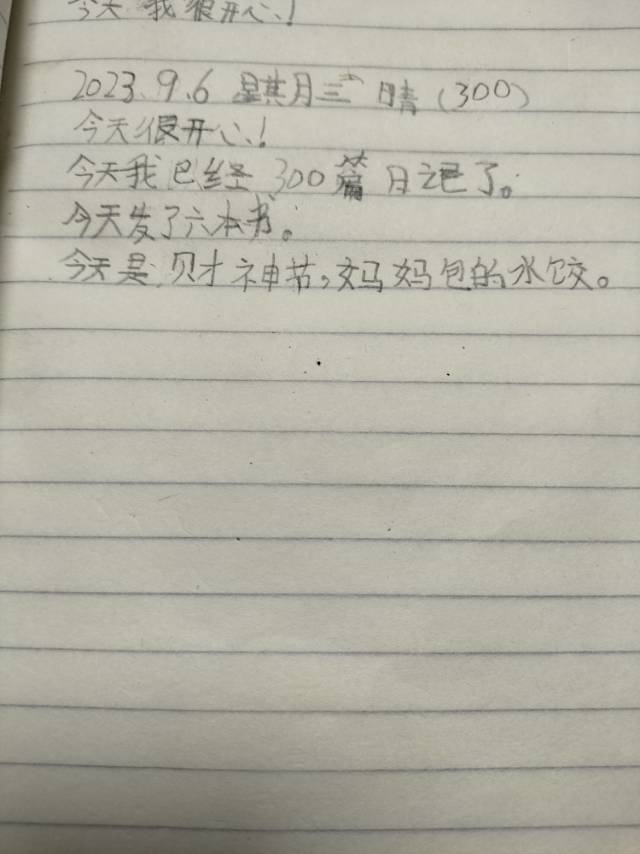 今天我很开心!
2023.9.6 星期三 晴(300)
今天很开心!
今天我已经300篇日记了。
今天发了六本书。
今天是财神节,妈妈包的水饺。